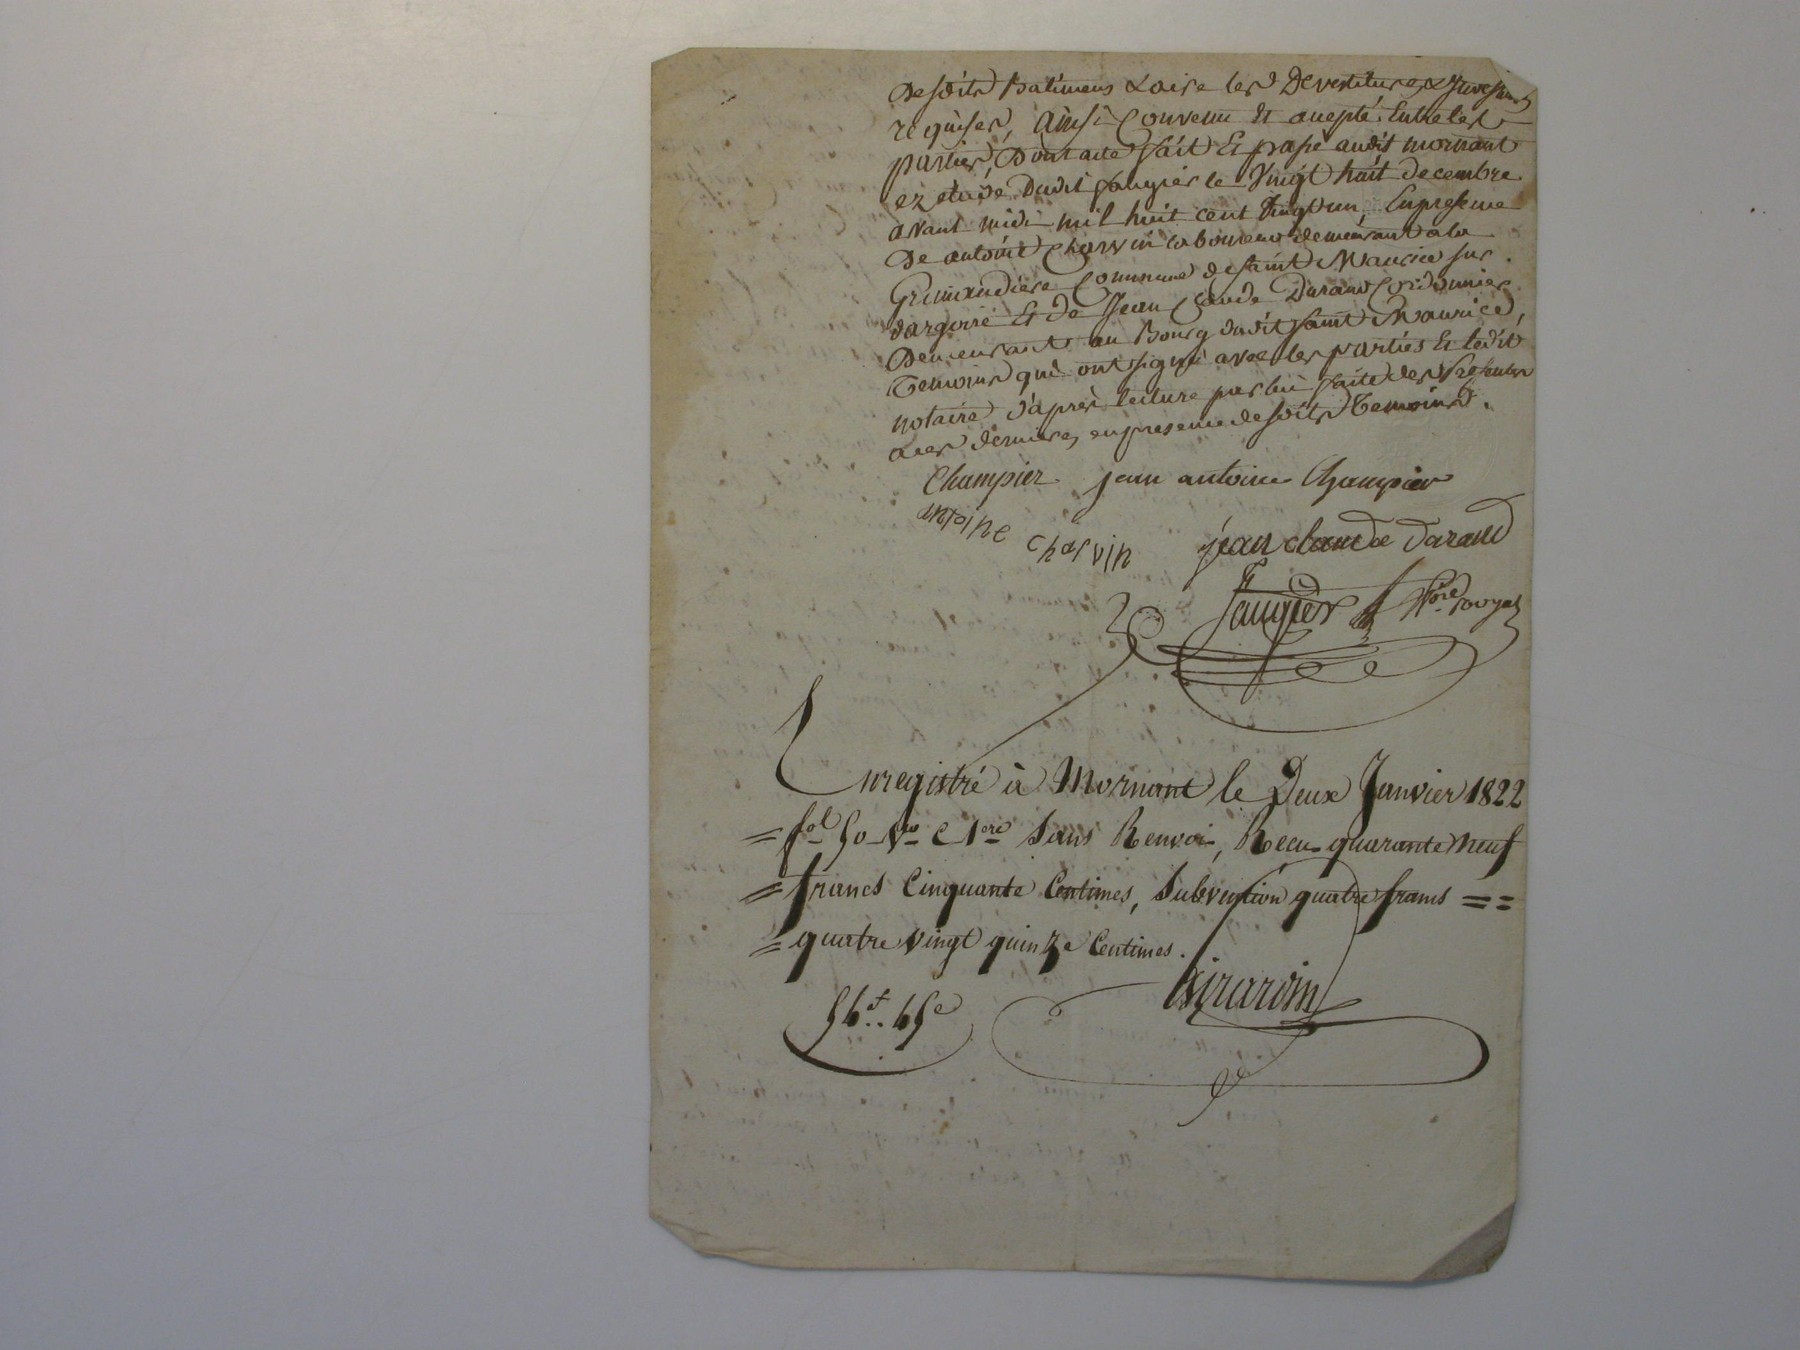 desdits Batimens & avec les Devestitures & Investitures
requises, Ainsi Convenu Et accepté Entre les
parties, Dont acte fait Et passé audit mornant
ez etude Dudit faugier le Vingt huit decembre
avant midi mil huit cent vingt un, En presence
De antoine Charvin laboureur demeurant a la
Grimaudiere Commune de Saint Maurice sur
dargoire Et de Jean Claude Durand Cordonnier
Demeurant au Bourg dudit Saint Maurice,
Temoins qui ont signé avec les parties Et ledit
notaire d'après lecture par lui faite des Presentes
a ces dernieres, en presence desdits Temoins.
Champier jean antoine Champier
antoine charvin jean claude durand
faugier Nore royal
Enregistré à Mornant le Deux Janvier 1822
= fol 50 Vo C 1ere Sans Renvoi, Recu quarante Neuf
= francs Cinquante Centimes, Subvention quatre francs ==
= quatre vingt quinze Centimes.
Girardin